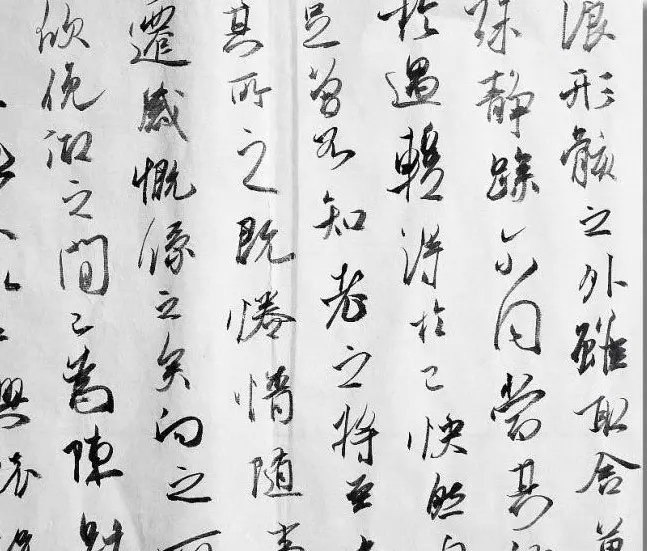 浪形骸之外雖取舍萬
殊静躁不同當其欣
於遇轉得於己快然自
足曾不知老之將至
其所之既惓情随事
遷感慨係之矣向之所
欣俛仰之間已為陳
興